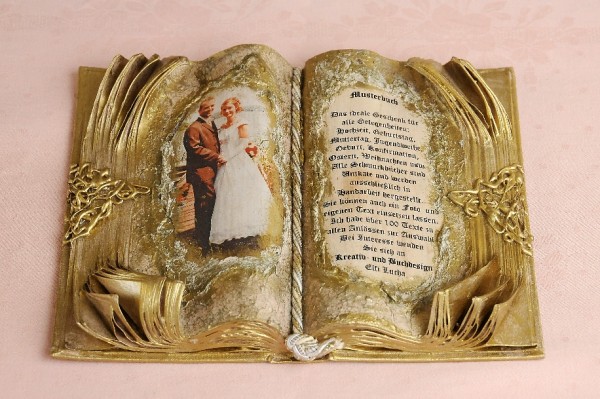 Musterbuch
Das ideale Geschenk für
alle Gelegenheiten:
Hochzeit, Geburtstag,
Muttertag, Jugendweihe,
Geburt, Konfirmation,
Ostern, Weihnachten usw.
Alle Schmuckbücher sind
Unikate und werden
ausschließlich in
Handarbeit hergestellt.
Sie können auch ein Foto und
eigenen Text einsetzen lassen.
Ich habe über 100 Texte zu
allen Anlässen zur Auswahl
Bei Interesse wenden
Sie sich an
Kreativ- und Buchdesign